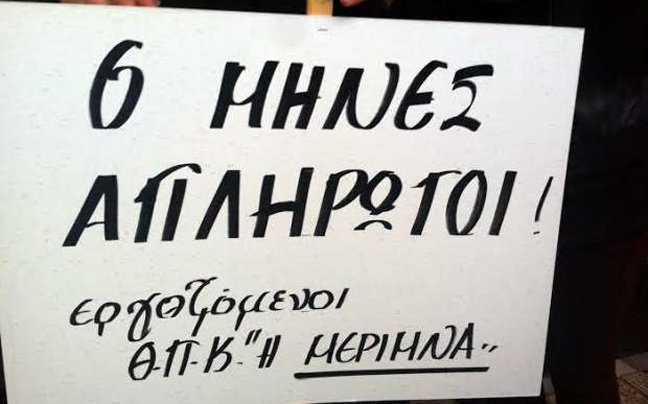 6 ΜΗΝΕΣ
ΑΠΛΗΡΩΤΟΙ!
εργαζόμενοι
Θ.Π.Κ. "Η ΜΕΡΙΜΝΑ"